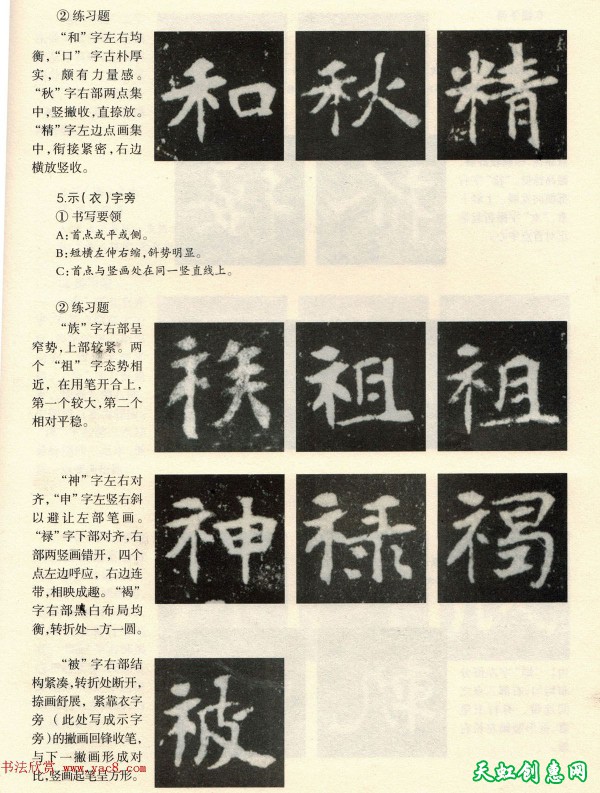 ② 练习题
“和”字左右均
衡,“口” 字古朴厚
实，颇有力量感。
“秋”字右部两点集
中,竖撇收,直捺放。
“精”字左边点画集
中,衔接紧密,右边
横放竖收。
和秋精
5.示(衣)字旁
① 书写要领
A:首点或平或侧。
B:短横左伸右缩,斜势明显。
C:首点与竖画处在同一竖直线上。
② 练习题
“族”字右部呈
窄势,上部较紧。两
个 “祖” 字态势相
近，在用笔开合上，
第一个较大,第二个
相对平稳。
祖祖
“神”字左右对
齐,“申”字左竖右斜
以避让左部笔画。
“禄”字下部对齐,右
部两竖画错开，四个
点左边呼应，右边连
带,相映成趣。“褐”
字右部黑白布局均
衡,转折处一方一圆。
神禄褐
“被”字右部结
构紧凑,转折处断开，
捺画舒展，紧靠衣字
旁 （此处写成示字
旁)的撇画回锋收笔，
与下一撇画形成对
比,竖画起笔呈方形。
被
书法欣赏 www.yac8.com
天虹创意网